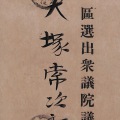 區選出衆議院議
大塚常次郎